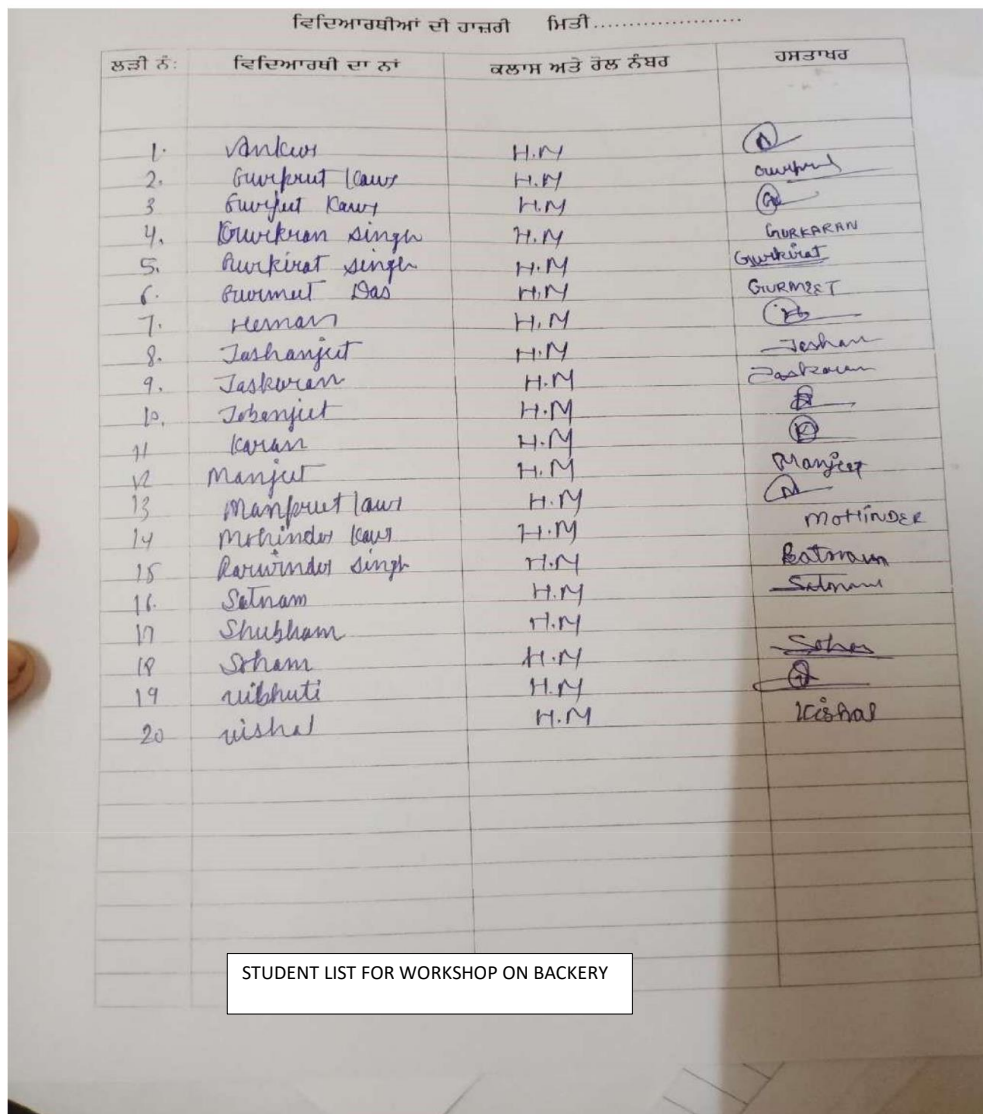 ਵਿਦਿਆਰਥੀਆਂ ਦੀ ਹਾਜ਼ਰੀ ਮਿਤੀ.....................
ਲੜੀ ਨੰ: ਵਿਦਿਆਰਥੀ ਦਾ ਨਾਂ ਕਲਾਸ ਅਤੇ ਰੋਲ ਨੰਬਰ ਹਸਤਾਖਰ
1. Ankur H.M
2. Gurpreet Kaur H.M
3 Kaur H.M
4. Gurkran Singh H.M GURKARAN
5. Gurkirat Singh H.M Gurkirat
6. Gurmeet Das H.M GURMEET
7. Heman H.M
8. Jashanjeet H.M Jashan
9. Jaskaran H.M Jaskaran
10. Jobanjeet H.M
11 Karan H.M
12 Manjeet H.M Manjeet
13 Manpreet Kaur H.M
14 Mohinder Kaur H.M MOHINDER
15 Singh H.M
16. Satnam H.M Satnam
17 Shubham H.M
18 Soham H.M
19 vibhuti H.M
20 vishal H.M Vishal
STUDENT LIST FOR WORKSHOP ON BACKERY